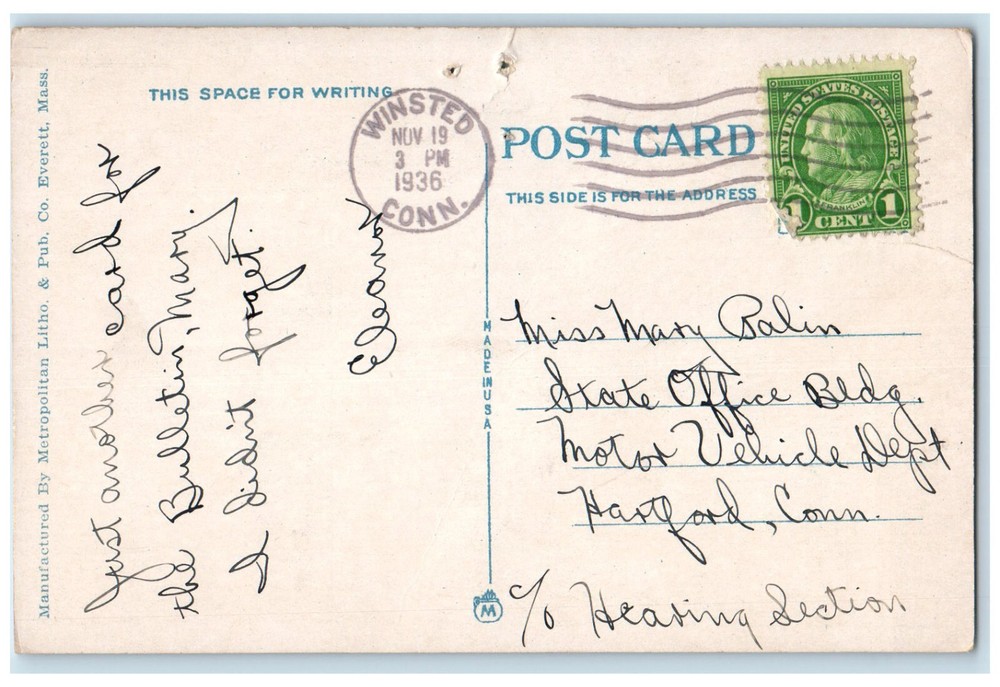 Manufactured By Metropolitan Litho. & Pub. Co. Everett, Mass.
THIS SPACE FOR WRITING
Just another card for
the Bulletin, Mary.
I didn't forget.
Eleanor
WINSTED
NOV 19
3 PM
1936
CONN.
POST CARD
THIS SIDE IS FOR THE ADDRESS
UNITED STATES POSTAGE
FRANKLIN
1 CENT 1
MADE IN USA
M
Miss Mary Balin
State Office Bldg.
Motor Vehicle Dept
Hartford, Conn.
c/o Hearing Section